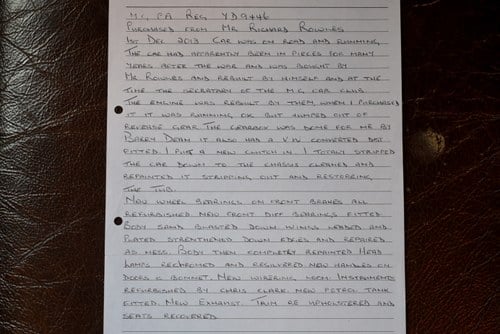 M.G. PA REG YD9446
PURCHASED FROM MR RICHARD ROWNES
1ST DEC 2013 CAR WAS ON ROAD AND RUNNING,
THE CAR HAD APPARENTLY BEEN IN PIECES FOR MANY
YEARS AFTER THE WAR AND WAS BOUGHT BY
MR ROWNES AND REBUILT BY HIMSELF AND AT THE
TIME THE SECRETARY OF THE M.G CAR CLUB
THE ENGINE WAS REBUILT BY THEM, WHEN I PURCHASED
IT IT WAS RUNNING OK BUT JUMPED OUT OF
REVERSE GEAR. THE GEARBOX WAS DONE FOR ME BY
BARRY DEAN IT ALSO HAD A V.W. CONVERTED DIST
FITTED I PUT A NEW CLUTCH IN I TOTALLY STRIPPED
THE CAR DOWN TO THE CHASSIS CLEANED AND
REPAINTED IT STRIPPING OUT AND RESTORING,
THE TUB.
NEW WHEEL BEARINGS ON FRONT BRAKES ALL
REFURBISHED NEW FRONT DIFF BEARINGS FITTED
BODY SAND BLASTED DOWN WINGS LEADED AND
PLATED STRENTHENED DOWN EDGES AND REPAIRED
AS NESS. BODY THEN COMPLETELY REPAINTED HEAD
LAMPS RECHROMED AND RESILVERED NEW HANDLES ON
DOORS & BONNET. NEW WIREING LOOM INSTRUMENTS
REFURBISHED BY CHRIS CLARK NEW PETROL TANK
FITTED. NEW EXHAUST. TRIM RE UPHOLSTERED AND
SEATS RECOVERED